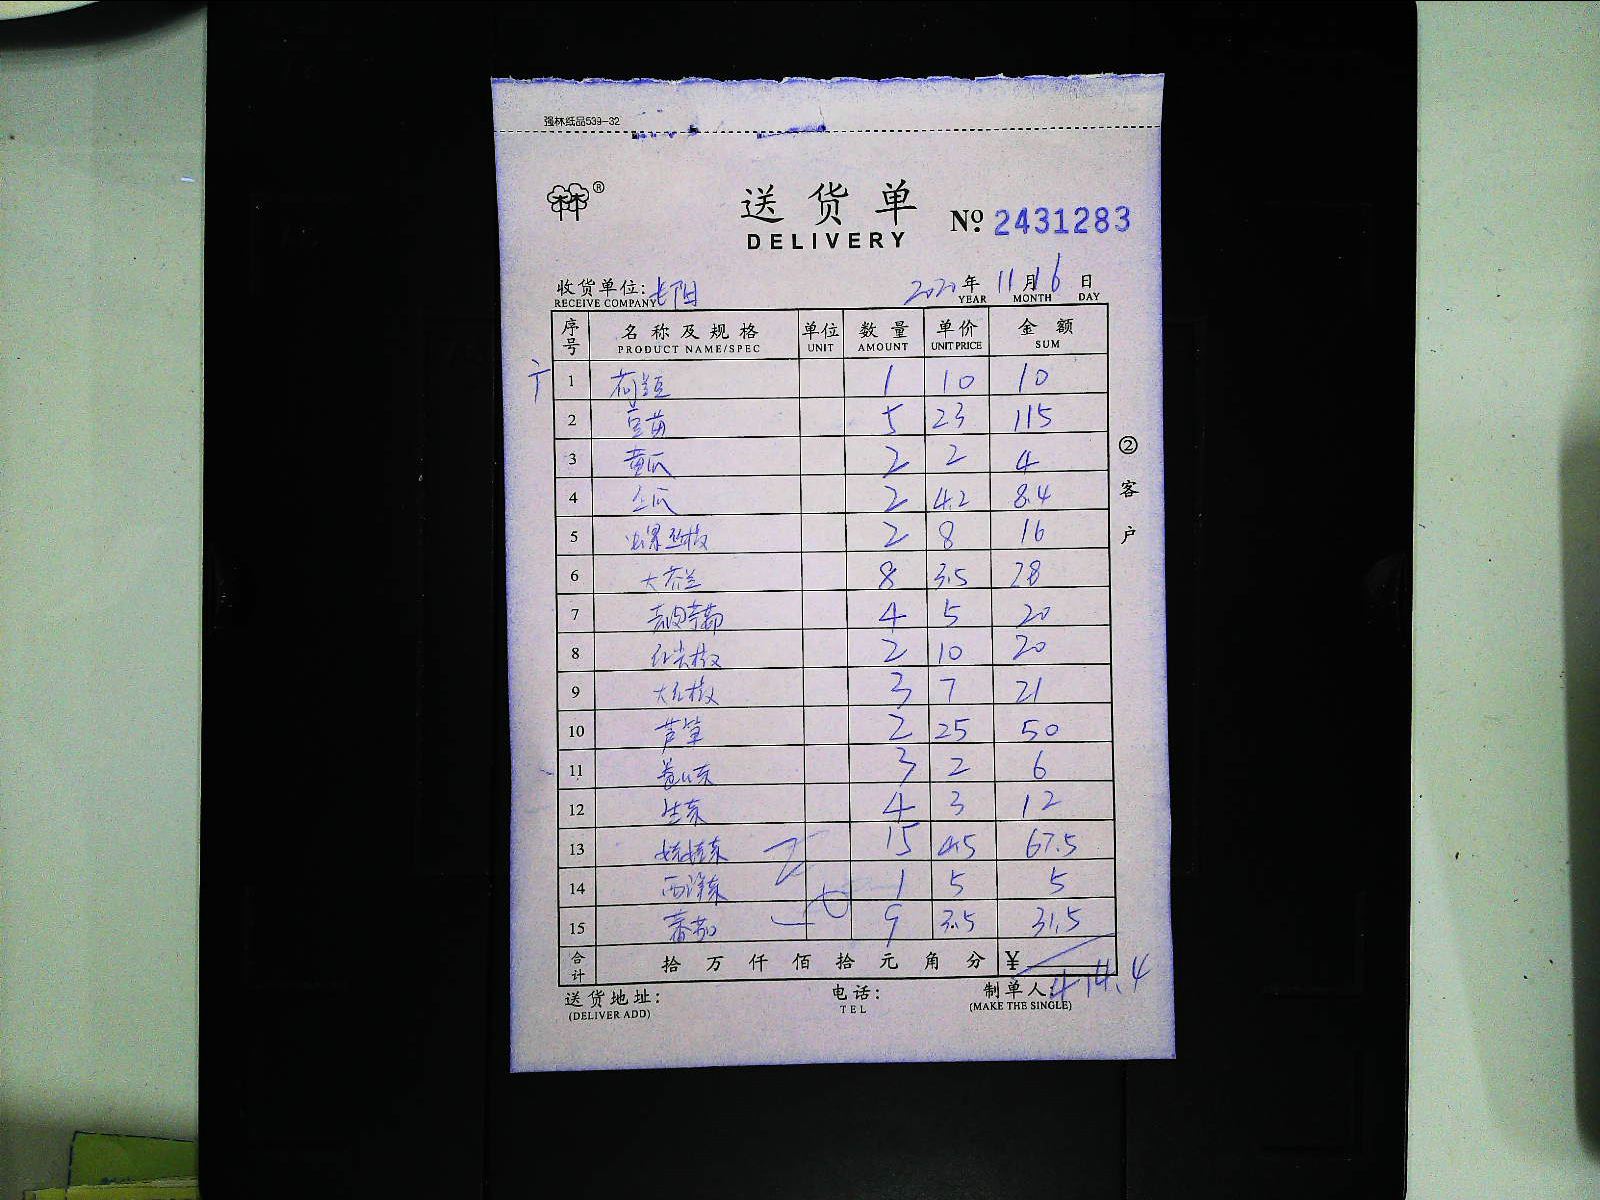 强林纸品539-32
送货单
DELIVERY
№ 2431283
收货单位:
RECEIVE COMPANY
2020年 11月16日
YEAR MONTH DAY
序号 名称及规格 单位 数量 单价 金额
PRODUCT NAME/SPEC UNIT AMOUNT UNIT PRICE SUM
1 荷兰豆 1 10 10
2 豆苗 5 23 115
3 黄瓜 2 2 4
4 2 4.2 8.4
5 螺丝椒 2 8 16
6 大芥兰 8 3.5 28
7 4 5 20
8 红尖椒 2 10 20
9 大红椒 3 7 21
10 芦笋 2 25 50
11 3 2 6
12 生菜 4 3 12
13 娃娃菜 15 4.5 67.5
14 西洋菜 1 5 5
15 番茄 9 3.5 31.5
合计 拾 万 仟 佰 拾 元 角 分 ¥
414.4
送货地址: 电话: 制单人:
(DELIVER ADD) TEL (MAKE THE SINGLE)
②客户